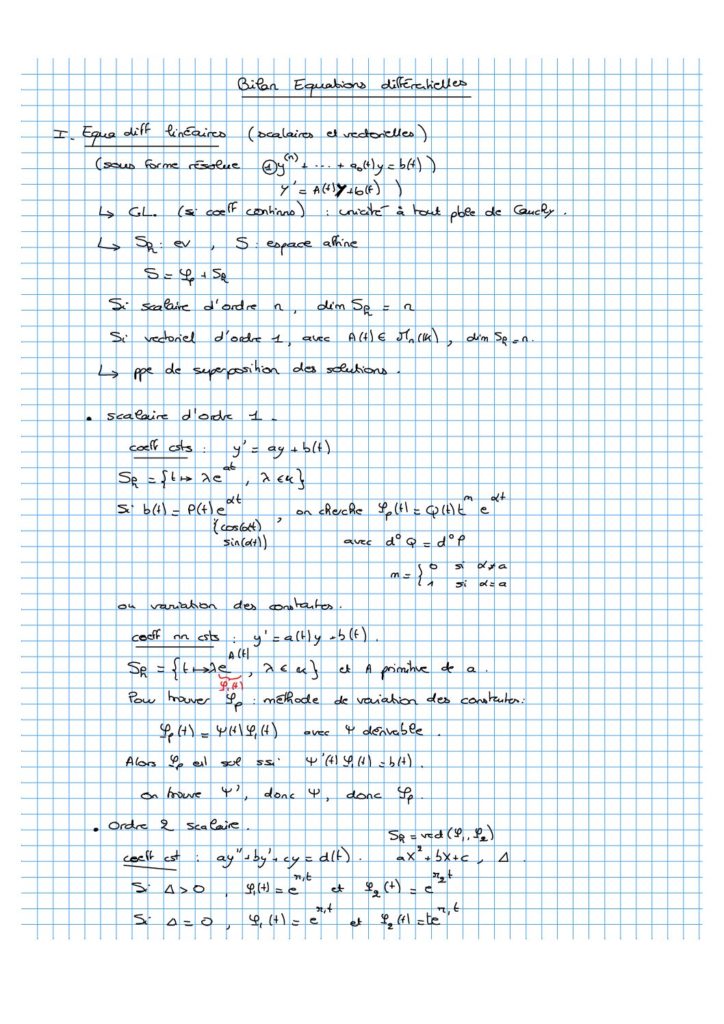 Bilan Equations différentielles
I. Equa diff linéaires (scalaires et vectorielles)
(sous forme résolue ① y⁽ⁿ⁾ + ... + a₀(t)y = b(t))
Y' = A(t)Y + b(t) )
↳ CL. (si coeff continus) : unicité à tout pble de Cauchy.
↳ S_R : ev , S : espace affine
S = φp + S_R
Si scalaire d'ordre n, dim S_R = n
Si vectoriel d'ordre 1, avec A(t) ∈ Mn(K), dim S_R = n.
↳ ppe de superposition des solutions.
• scalaire d'ordre 1.
coeff csts : y' = ay + b(t)
S_R = {t ↦ λe^{at}, λ ∈ K}
Si b(t) = P(t)e^{αt}, on cherche φp(t) = Q(t)t^m e^{αt}
{cos(αt)
sin(αt)) avec d°Q = d°P
m = { 0 si α≠a
1 si α=a
ou variation des constantes.
coeff nn csts : y' = a(t)y + b(t).
S_R = {t ↦ λe^{A(t)}, λ ∈ K} et A primitive de a.
φ₁(t)
Pour trouver φp : méthode de variation des constantes:
φp(t) = Ψ(t)φ₁(t) avec Ψ dérivable.
Alors φp est sol ssi Ψ'(t)φ₁(t) = b(t).
on trouve Ψ', donc Ψ, donc φp.
• Ordre 2 scalaire. S_R = vect(φ₁, φ₂)
coeff cst : ay'' + by' + cy = d(t). aX² + bX + c, Δ
Si Δ > 0, φ₁(t) = e^{r₁t} et φ₂(t) = e^{r₂t}
Si Δ = 0, φ₁(t) = e^{r₁t} et φ₂(t) = te^{r₁t}